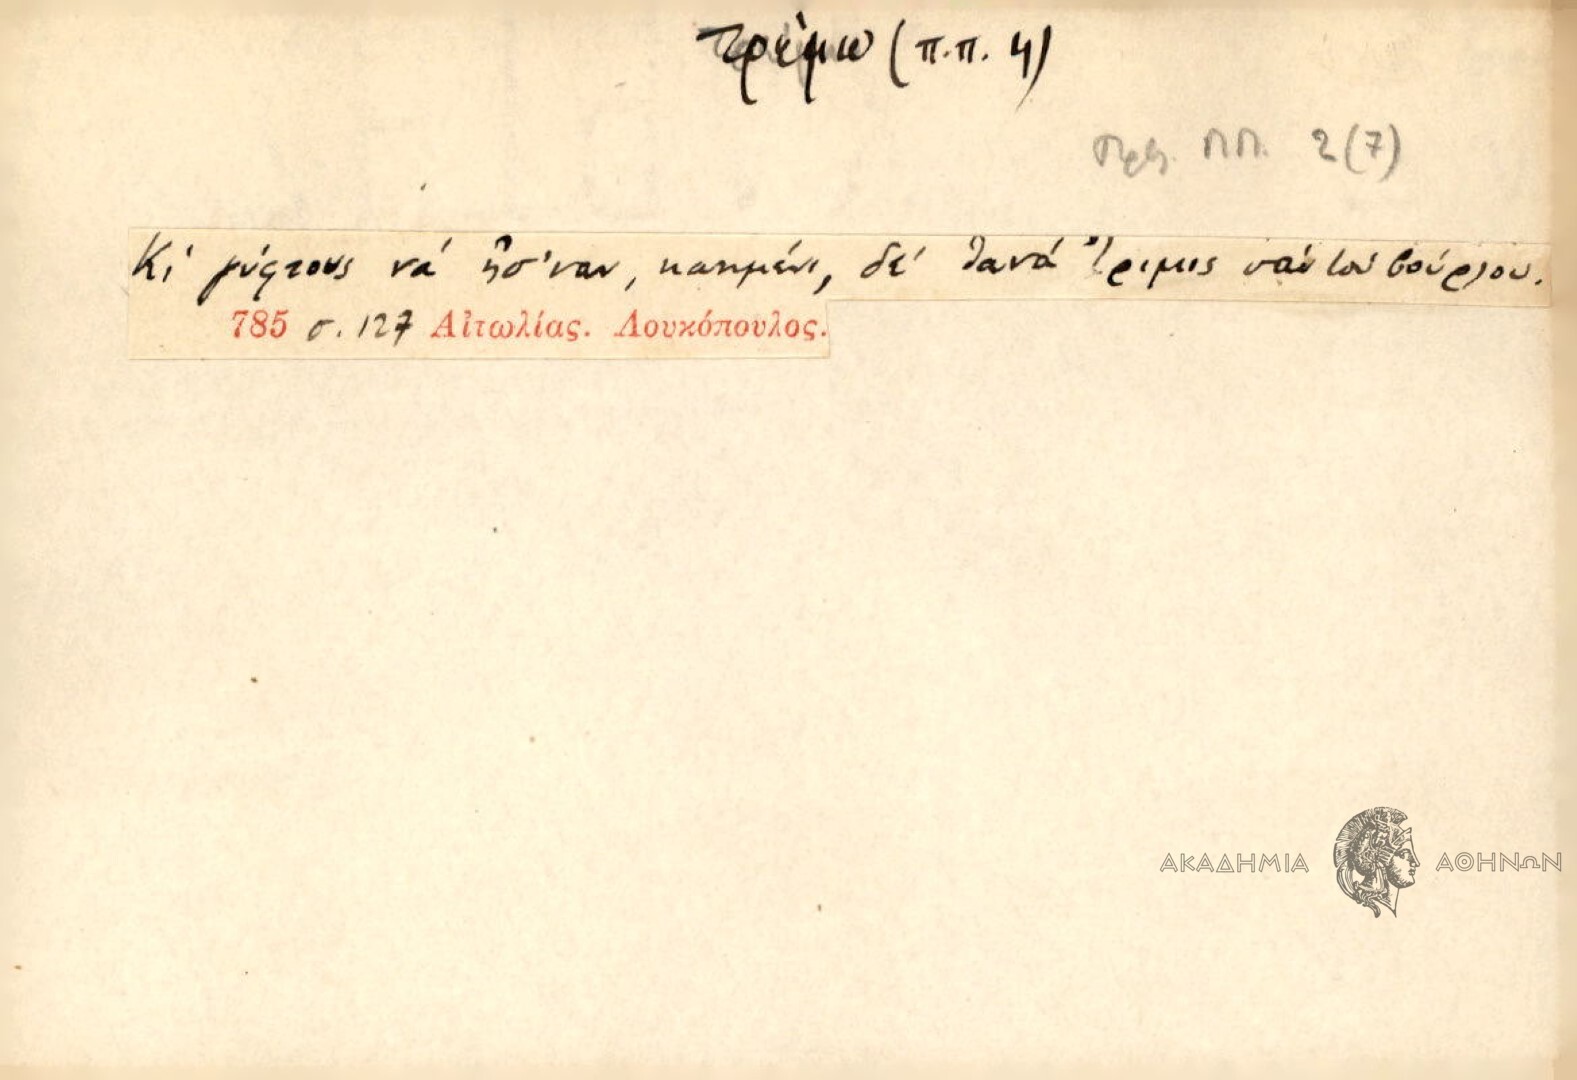 τρέμω (π.π. 4)
Πρβ. ΠΠ. 2(7)
Κι γύφτους νά ἦσ'ναν, καημένι, δέ θανά 'τριμις σάν τού βούρλου.
785 σ. 127 Αἰτωλίας. Λουκόπουλος.
ΑΚΑΔΗΜΙΑ ΑΘΗΝΩΝ